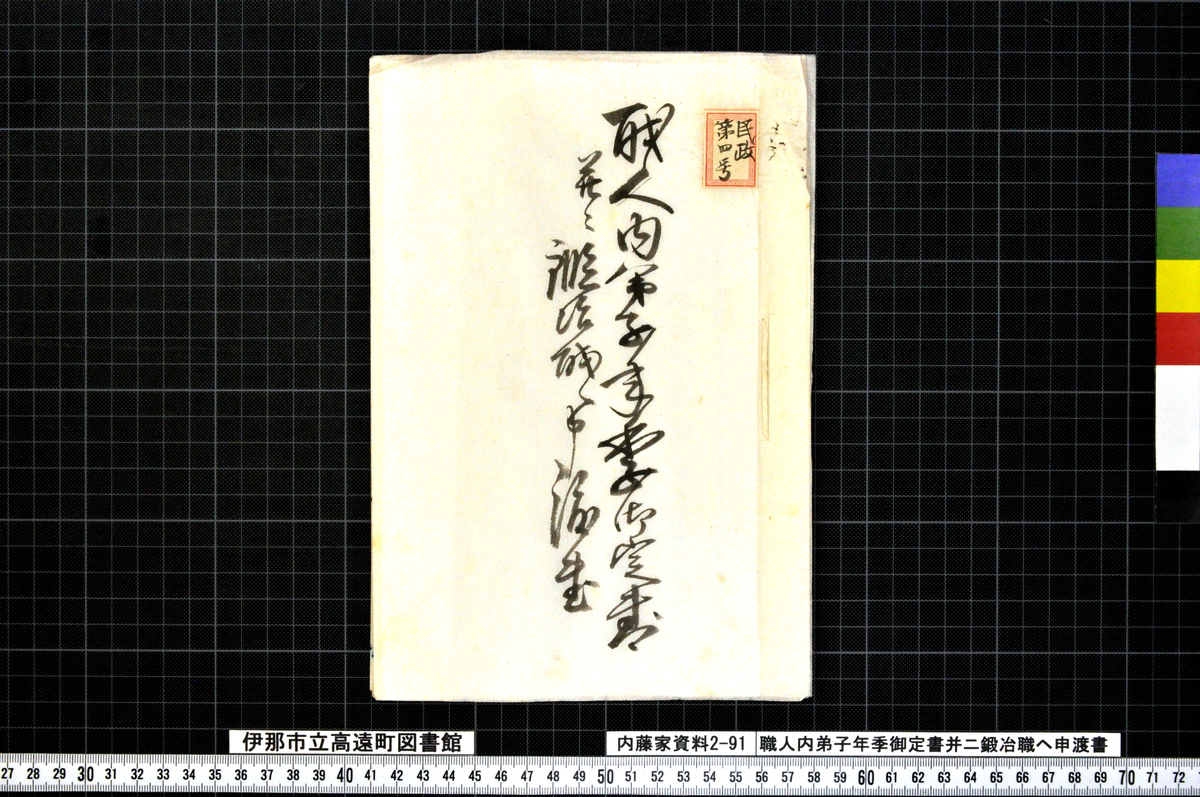 民政
第四号
職人内弟子年季御定書
并ニ鍛冶職ヘ申渡書
伊那市立高遠町図書館
内藤家資料2-91
職人内弟子年季御定書并二鍛冶職ヘ申渡書
27 28 29 30 31 32 33 34 35 36 37 38 39 40 41 42 43 44 45 46 47 48 49 50 51 52 53 54 55 56 57 58 59 60 61 62 63 64 65 66 67 68 69 70 71 72